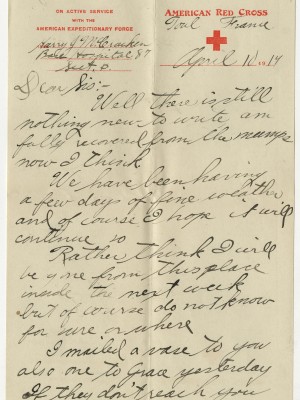 ON ACTIVE SERVICE
WITH THE
AMERICAN EXPEDITIONARY FORCE
Harry J. McCracken
Base Hospital 87
AMERICAN RED CROSS
Toul France
April 10 1919
Dear Sis:-
Well there is still
nothing new to write am
fully recovered from the mumps
now I think
We have been having
a few days of fine weather
and of course I hope it will
continue so
Rather think I will
be gone from this place
inside the next week
but of course do not know
for sure or where
I mailed a vase to you
also one to Grace yesterday
If they don't reach you